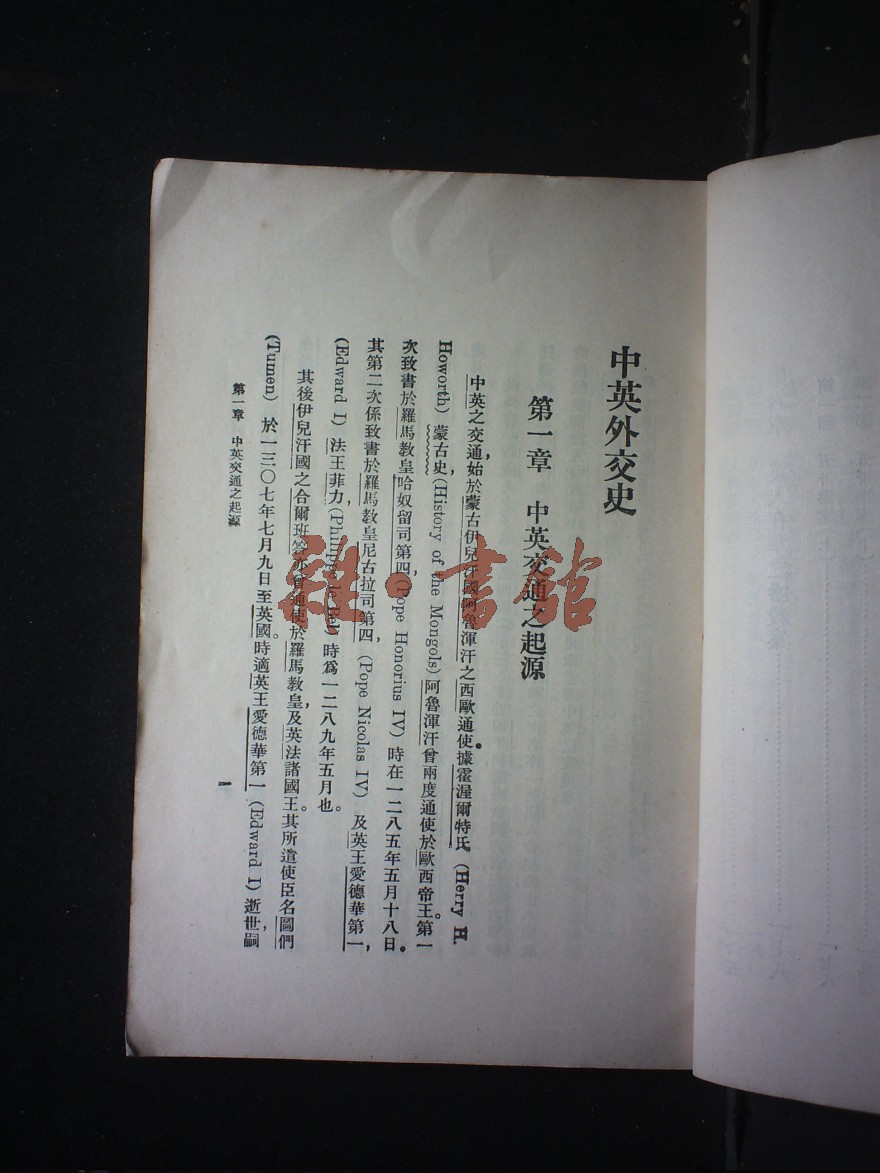 中英外交史
第一章　中英交通之起源
中英之交通，始於蒙古伊兒汗國阿魯渾汗之西歐通使。據霍渥爾特氏 (Herry H.
Howorth) 蒙古史 (History of the Mongols) 阿魯渾汗曾兩度通使於歐西帝王。第一
次致書於羅馬教皇哈奴留司第四，(Pope Honorius IV) 時在一二八五年五月十八日。
其第二次係致書於羅馬教皇尼古拉司第四，(Pope Nicolas IV) 及英王愛德華第一，
(Edward I) 法王菲力 (Philippe le Bel) 時爲一二八九年五月也。
其後伊兒汗國之合爾班答亦曾通使於羅馬教皇，及英法諸國王。其所遣使臣名圖們
(Tumen) 於一三〇七年七月九日至英國。時適英王愛德華第一 (Edward I) 逝世，嗣
第一章　中英交通之起源
一
雜·書館